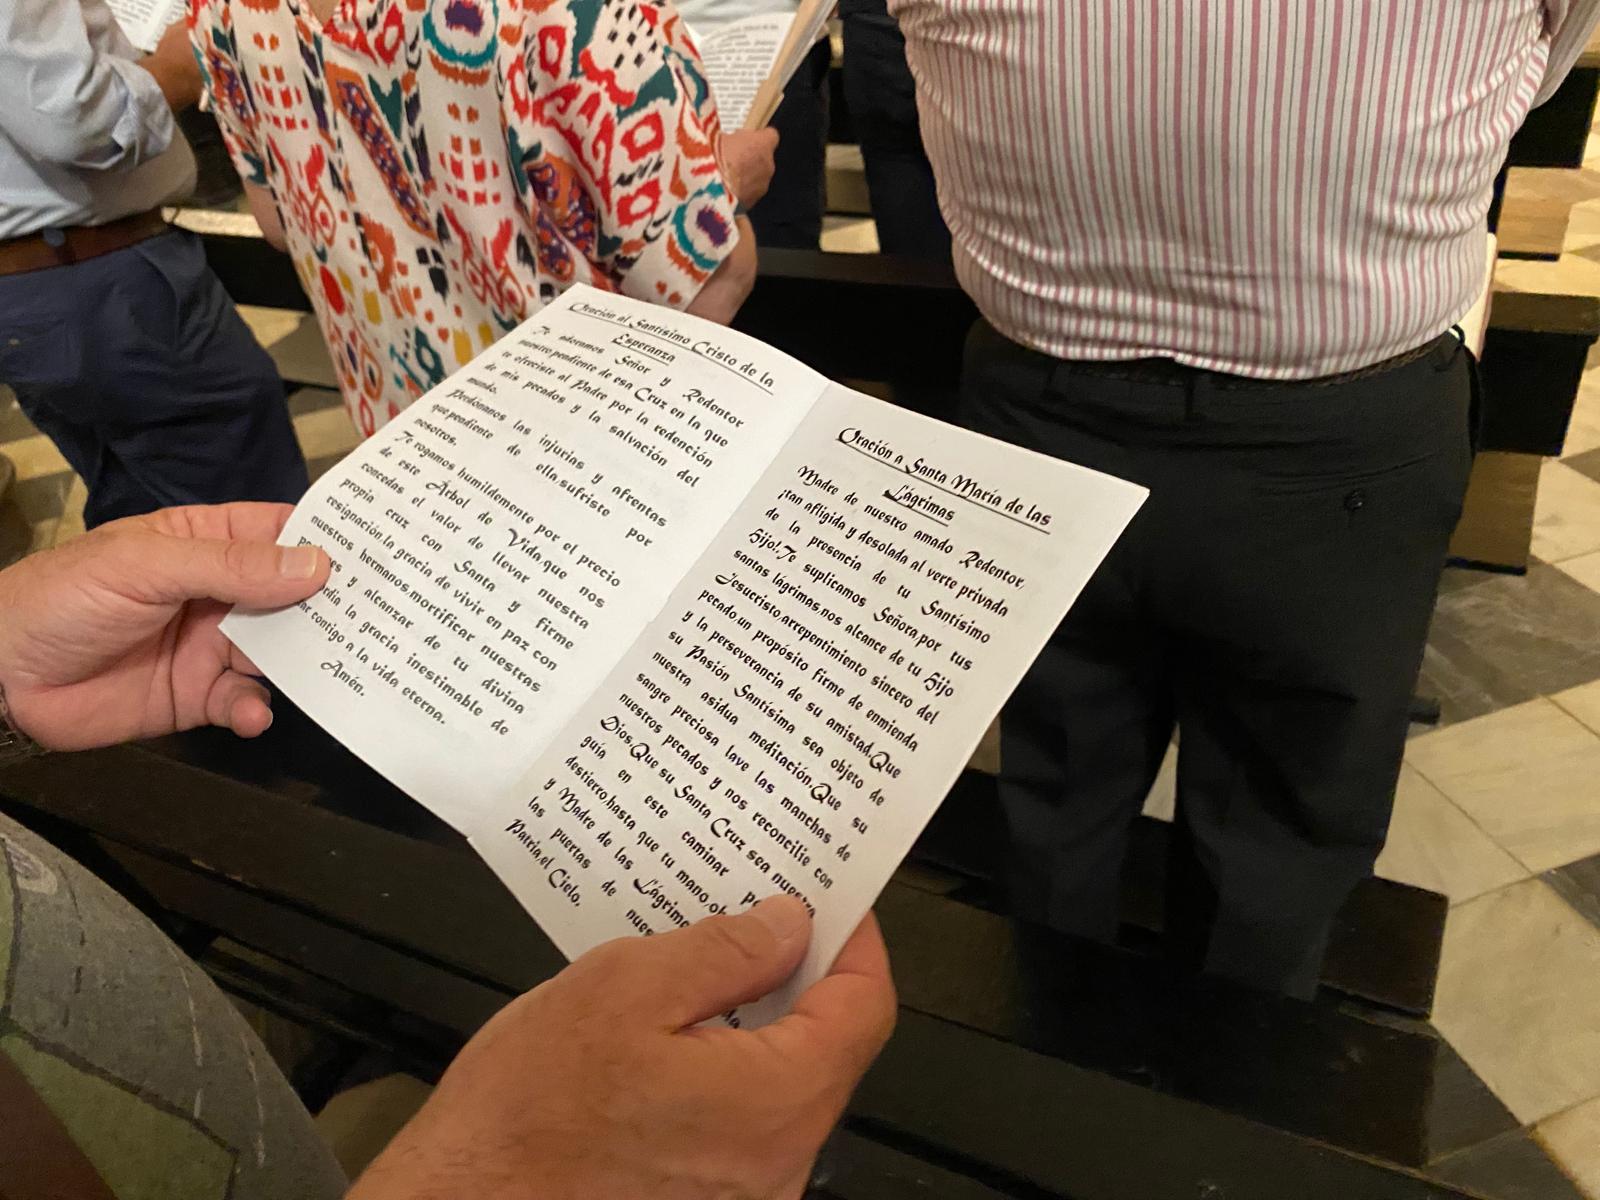 Oración al Santísimo Cristo de la
Esperanza
Te adoramos Señor y Redentor
nuestro,pendiente de esa Cruz en la que
te ofreciste al Padre por la redención
de mis pecados y la salvación del
mundo.
Perdónanos las injurias y afrentas
que,pendiente de ella,sufriste por
nosotros.
Te rogamos humildemente por el precio
de este Árbol de Vida,que nos
concedas el valor de llevar nuestra
propia cruz con Santa y firme
resignación,la gracia de vivir en paz con
nuestros hermanos,mortificar nuestras
y alcanzar de tu divina
la gracia inestimable de
contigo a la vida eterna.
Amén.
Oración a Santa María de las
Lágrimas
Madre de nuestro amado Redentor,
¡tan afligida y desolada al verte privada
de la presencia de tu Santísimo
Hijo!.Te suplicamos Señora,por tus
santas lágrimas,nos alcance de tu Hijo
Jesucristo,arrepentimiento sincero del
pecado,un propósito firme de enmienda
y la perseverancia de su amistad.Que
su Pasión Santísima sea objeto de
nuestra asidua meditación.Que su
sangre preciosa lave las manchas de
nuestros pecados y nos reconcilie con
Dios.Que su Santa Cruz sea nuestra
guía en este caminar
destierro,hasta que tu mano,oh
y Madre de las
las puertas de
Patria,el Cielo.